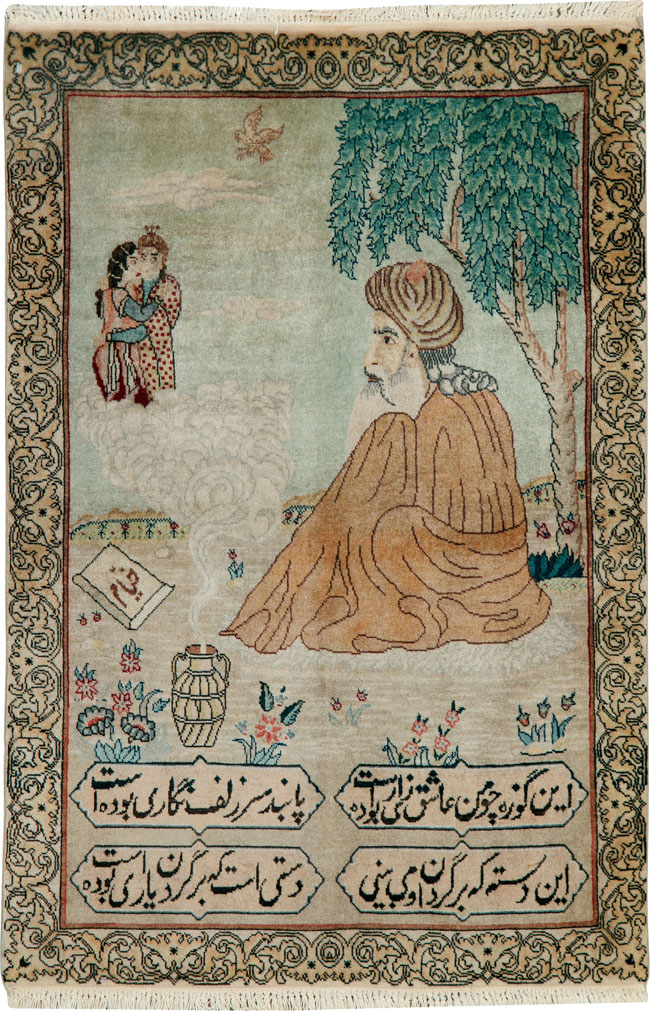 خیام
این کوزه چو من عاشق زاری بوده است
پابند سر زلف نگاری بوده است
این دسته که بر گردن او می بینی
دستی است که بر گردن یاری بوده است